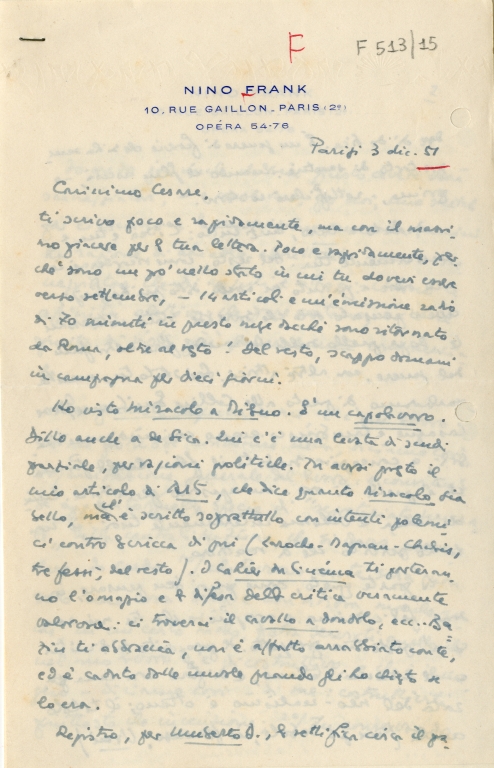 F
F 513/15
NINO FRANK
10, RUE GAILLON - PARIS (2e)
OPÉRA 54-76
Parigi 3 dic. 51
Carissimo Cesare,
ti scrivo poco e rapidamente, ma con il massi-
mo piacere per la tua lettera. Poco e rapidamente, per-
chè sono un po' nello stato in cui tu dovevi essere
verso settembre, — 14 articoli e un'emissione radio
di 70 minuti in questo mese dacchè sono ritornato
da Roma, oltre al resto! Del resto, scappo domani
in campagna per dieci giorni.
Ho visto Miracolo a Milano. È un capolavoro.
Dillo anche a De Sica. Qui c'è una levata di scudi
parziale, per ragioni politiche. Tu avrai presto il
mio articolo di Arts, che dice quanto Miracolo sia
bello, ma è scritto soprattutto con intenti polemi-
ci contro la cricca di qui (Laroche - Magnan - Chalais,
tre fessi, del resto). I Cahiers du Cinéma ti porteran-
no l'omaggio e la difesa della critica veramente
valorosa: ci troverai il cavallo a dondolo, ecc.. Ba-
zin ti abbraccia, non è affatto arrabbiato con te,
ed è caduto dalle nuvole quando gli ho chiesto se
lo era.
Registro, per Umberto D., la rettifica circa il